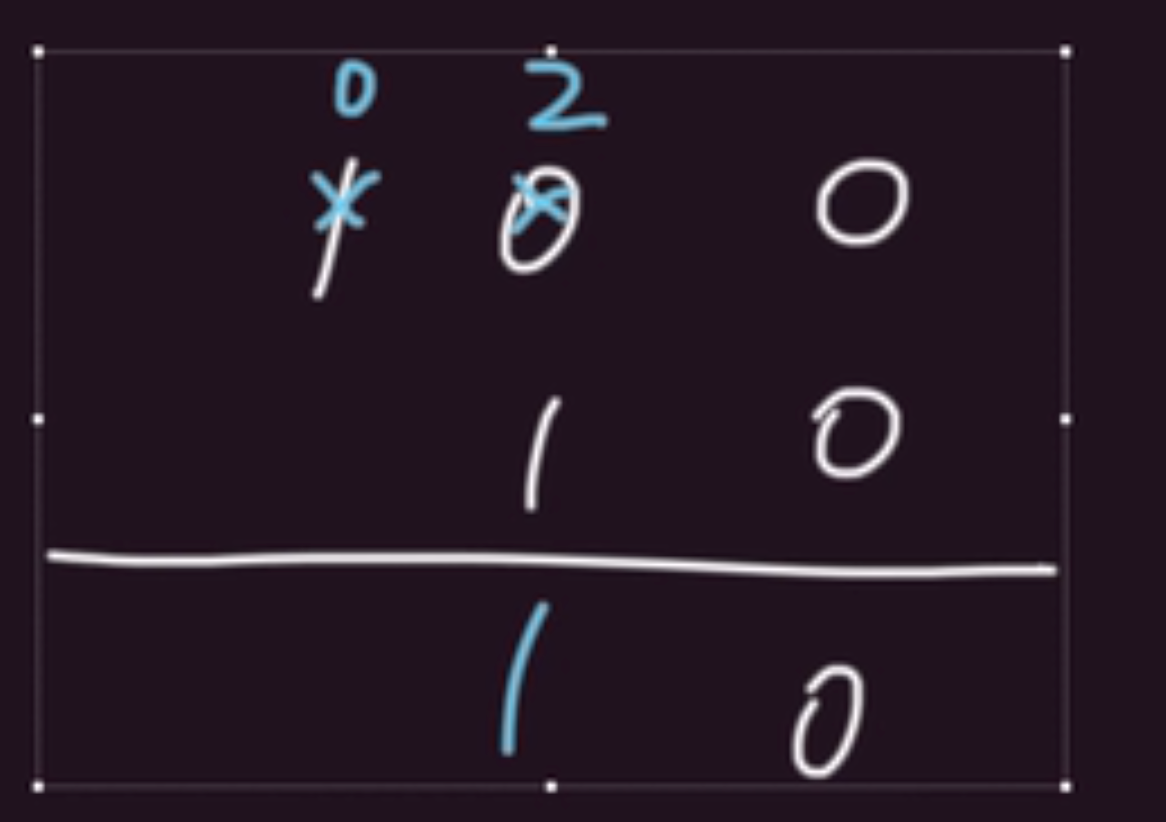 0 2
1 0 0
1 0
1 0